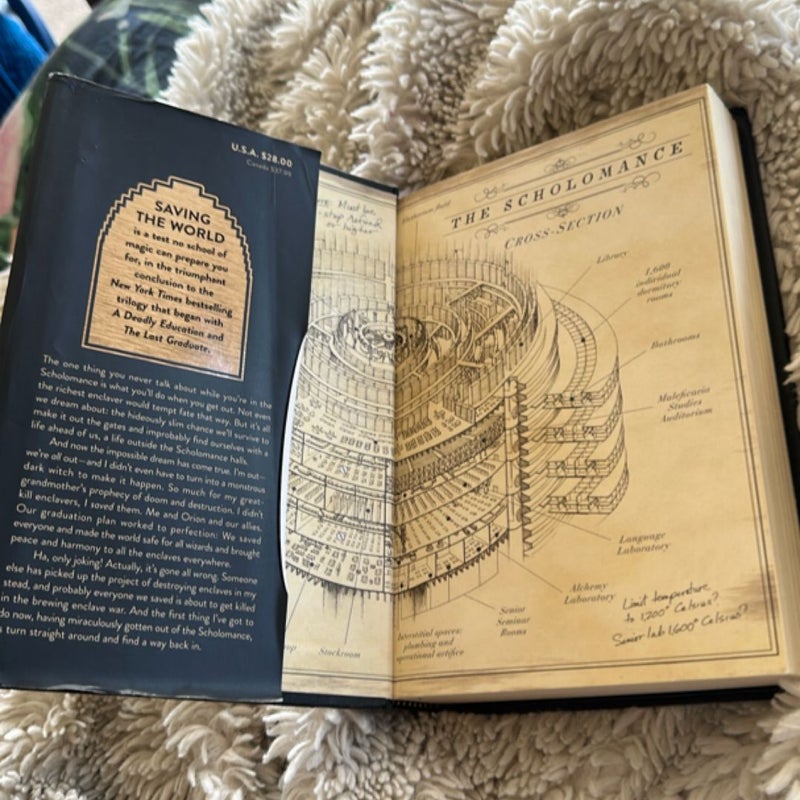 U.S.A. $28.00
Canada $37.99
SAVING
THE WORLD
is a test no school of
magic can prepare you
for, in the triumphant
conclusion to the
New York Times bestselling
trilogy that began with
A Deadly Education and
The Last Graduate.
The one thing you never talk about while you're in the
Scholomance is what you'll do when you get out. Not even
the richest enclaver would tempt fate that way. But it's all
we dream about: the hideously slim chance we'll survive to
make it out the gates and improbably find ourselves with a
life ahead of us, a life outside the Scholomance halls.
And now the impossible dream has come true. I'm out—
we're all out—and I didn't even have to turn into a monstrous
dark witch to make it happen. So much for my great-
grandmother's prophecy of doom and destruction. I didn't
kill enclavers, I saved them. Me and Orion and our allies.
Our graduation plan worked to perfection: We saved
everyone and made the world safe for all wizards and brought
peace and harmony to all the enclaves everywhere.
Ha, only joking! Actually, it's gone all wrong. Someone
else has picked up the project of destroying enclaves in my
stead, and probably everyone we saved is about to get killed
in the brewing enclave war. And the first thing I've got to
do now, having miraculously gotten out of the Scholomance,
is turn straight around and find a way back in.
Must be
or higher
Stockroom
THE SCHOLOMANCE
CROSS-SECTION
Library
1,600
individual
dormitory
rooms
Bathrooms
Maleficaria
Studies
Auditorium
Language
Laboratory
Alchemy
Laboratory
Senior
Seminar
Rooms
Interstitial spaces:
plumbing and
operational artifice
Limit temperature
to 1,200° Celsius?
Senior lab 1,600° Celsius?